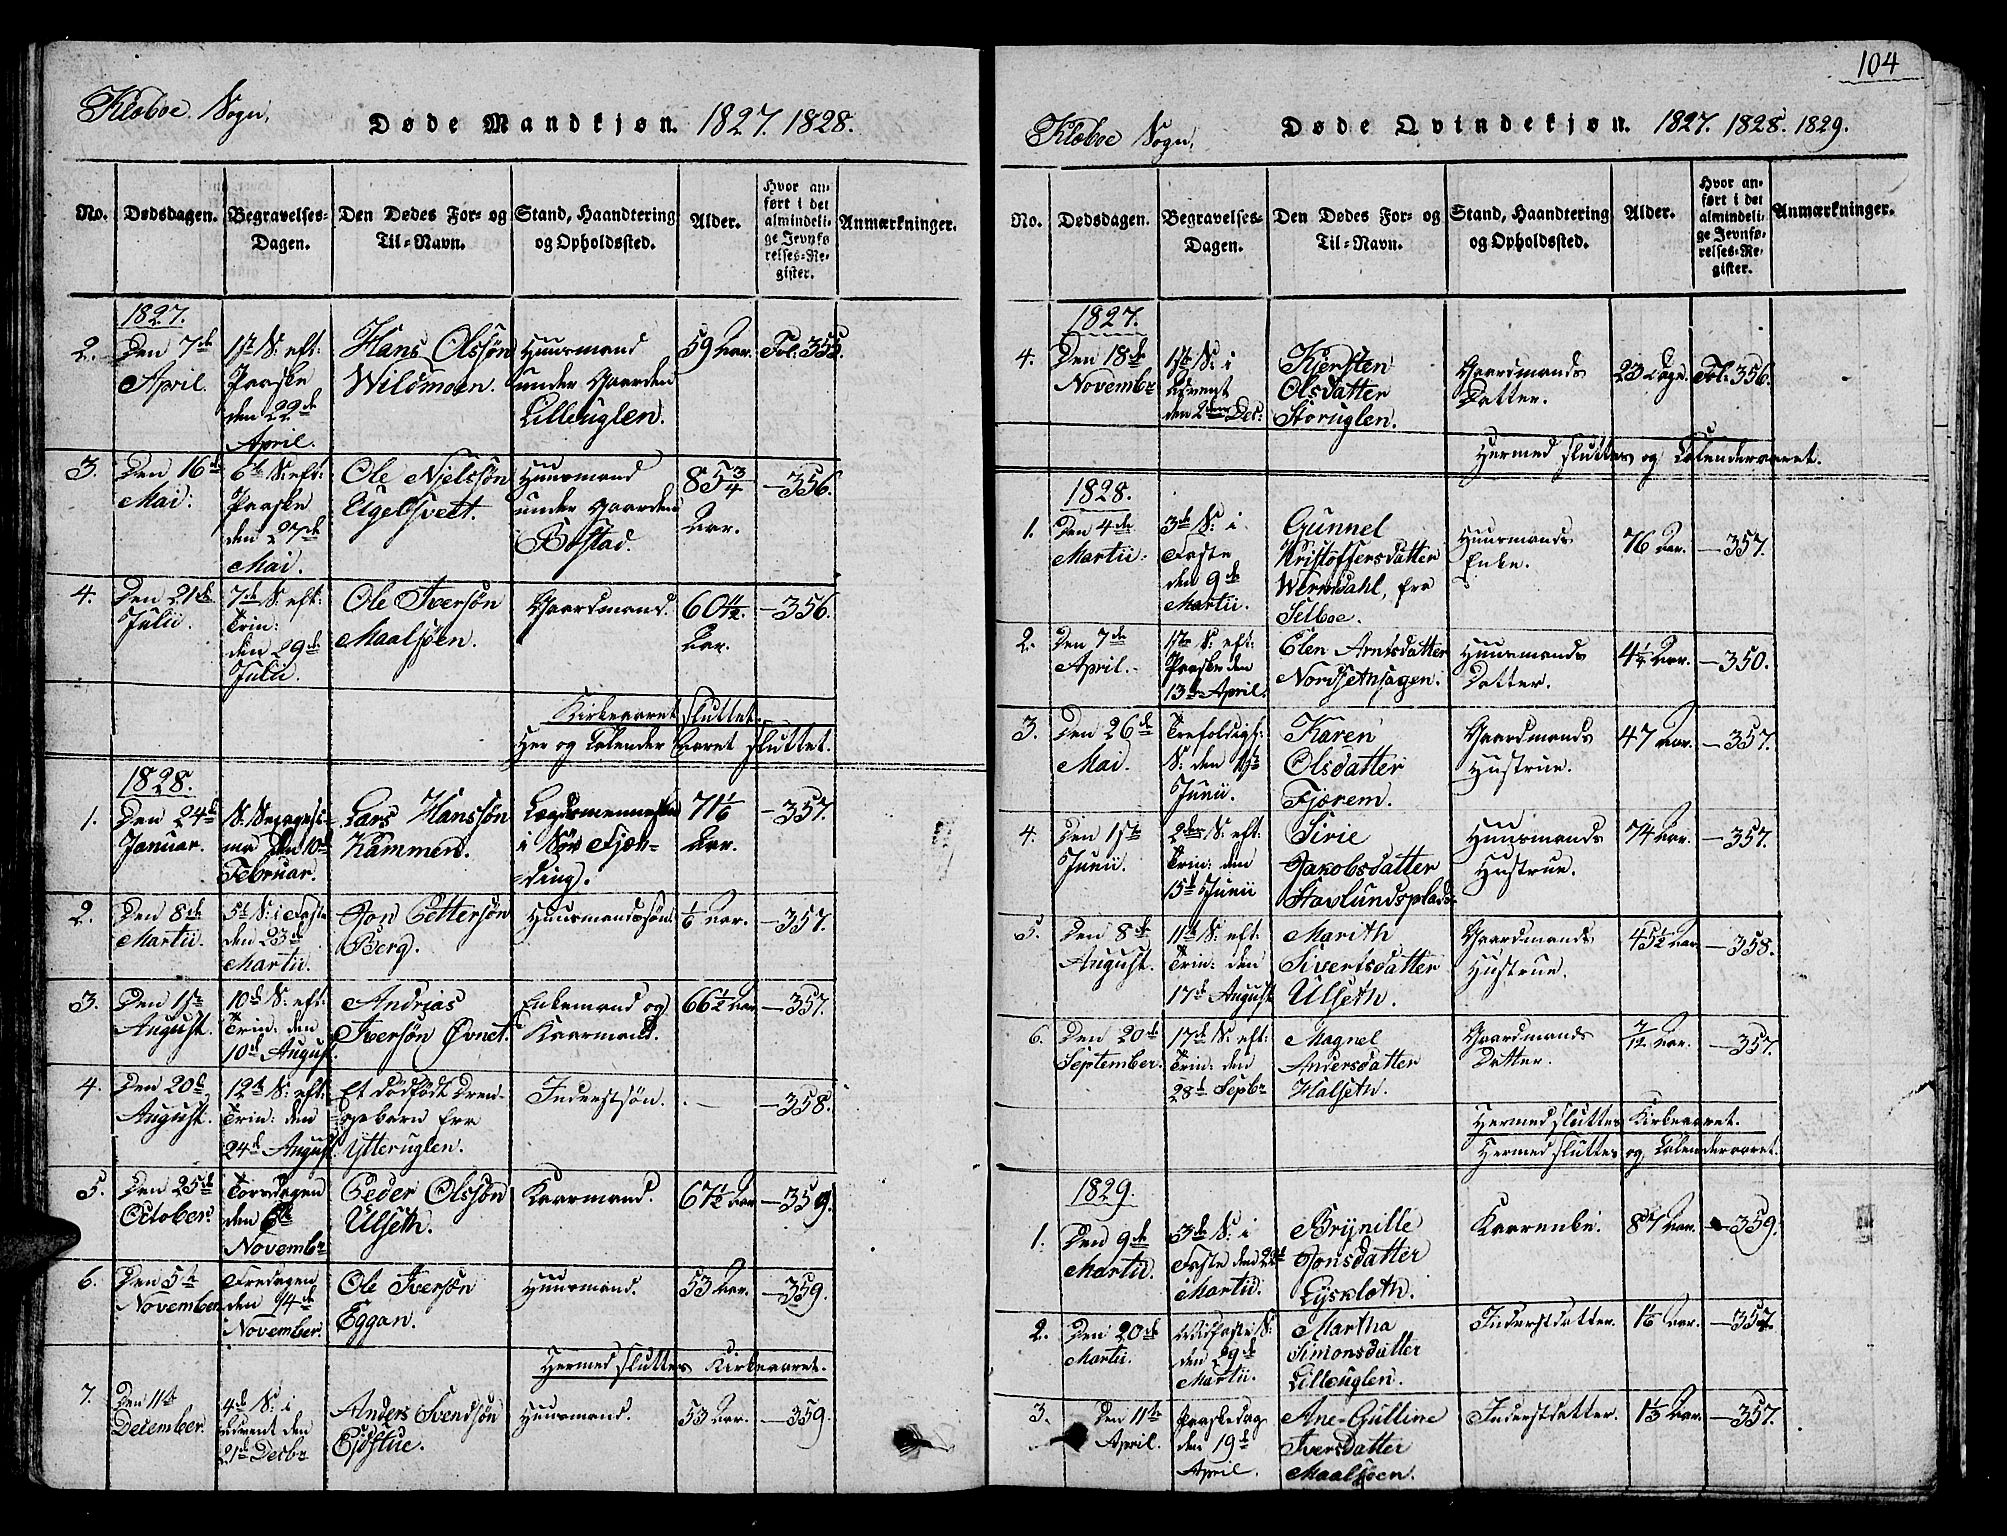 104
Klæboe Sogn,
Døde Mandkjøn. 1827. 1828.
No. Dødsdagen. Begravelses-Dagen. Den Dødes For- og Til-Navn. Stand, Haandtering og Opholdssted. Alder. Hvor anført i det almindelige Jevnførelses-Register. Anmærkninger.
1827.
2. Den 7de April. 1ste S: eft: Paaske den 22de April. Hans Olssøn Wildmoen. Huusmand under Gaarden Lilleuglen. 59 Aar. Fol: 355.
3. Den 16de Mai. 6te S: eft: Paaske den 27de Mai. Ole Nielssøn Eigelsvelt. Huusmand under Gaarden Bostad. 85 3/4 Aar. —356.
4. Den 21de Julii. 7de S: eft: Trin: den 29de Julii. Ole Iversøn Maalsøen. Gaardmand. 60 1/2 Aar. —356.
Kirkeaaret sluttet.
Her og Calender Aaret sluttet.
1828.
1. Den 24de Januar. S. Seragesima den 10de Februar. Lars Hanssøn Kammen. Lægdsmenneske i Nør Fjæremding. 71 1/6 Aar. —357.
2. Den 8de Martii. 5te S: i Faste den 23de Martii. Jon Pettersøn Berg. Huusmandssøn. 1/6 Aar. —357.
3. Den 1ste August. 10de S: eft: Trin: den 10de August. Andrias Iversøn Øvnet. Enkemand og Kaarmand. 66 1/2 Aar —357.
4. Den 20de August. 12te S: eft: Trin: den 24de August. Et dødfødt Drengebarn fra Ytteruglen. Inderstsøn. — —358.
5. Den 25de October. Torsdagen den 6te Novembr Peder Olssøn Ulseth. Kaarmand. 67 1/2 Aar —359.
6. Den 5te November Fredagen den 14de November. Ole Iversøn Eggan. Huusmand. 53 Aar. —359.
Hermed sluttes Kirkeaaret.
7. Den 11te December. 4de S: i Advent den 21de Decbr Anders Svendsøn Eidstue. Huusmand. 53 Aar. —359.
Klæboe Sogn,
Døde Qvindekjøn. 1827. 1828. 1829.
No. Dødsdagen. Begravelses-Dagen. Den Dødes For- og Til-Navn. Stand, Haandtering og Opholdssted. Alder. Hvor anført i det almindelige Jevnførelses-Register. Anmærkninger.
1827.
4. Den 18de Novembr 1ste S: i Advent den 2den Dec: Kjersten Olsdatter Storuglen. Gaardmands Datter. 23 Dage. Fol: 356.
Hermed sluttes og Calenderaaret.
1828.
1. Den 4de Martii. 3de S: i Faste den 9de Martii. Gunnel Kristoffersdatter Werndahl, fra Selboe. Huusmands Enke. 76 Aar. —357.
2. Den 7de April. 1ste S: eft: Paaske den 13de April. Elen Arntsdatter Nordsethhagen. Huusmands Datter. 4 1/4 Aar. —350.
3. Den 26de Mai. Trefoldigh: S. den 1ste Junii. Karen Olsdatter Fjærem. Gaardmands Hustrue. 47 Aar. —357.
4. Den 1ste Junii. 2den S: eft: Trin: den 15de Junii Sirie Jakobsdatter Stovlundsplads. Huusmands Hustrue. 74 Aar. —357.
5. Den 8de August. 11te S: eft: Trin: den 17de August Marith Sivertsdatter Ulseth. Gaardmands Hustrue. 45 1/2 Aar —358.
6. Den 20de September. 17de S: eft: Trin: den 28de Septbr Magnel Andersdatter Halseth. Gaardmands Datter. 7/12 Aar. —357
Hermed sluttes Kirkeaaret.
Hermed sluttes og Calenderaaret.
1829.
1. Den 9de Martii. 3de S: i Faste den 22de Martii. Brynille Jonsdatter Lyskloth. Kaarenke. 87 Aar. —359.
2. Den 20de Martii. Midfaste S: den 29de Martii. Martha Simonsdatter Lilleuglen. Inderstdatter. 1 1/6 Aar. —357.
3. Den 11te April. Paaskedag den 19de April. Ane-Gulline Iversdatter Maalsøen. Inderstdatter. 1 1/3 Aar. —357.